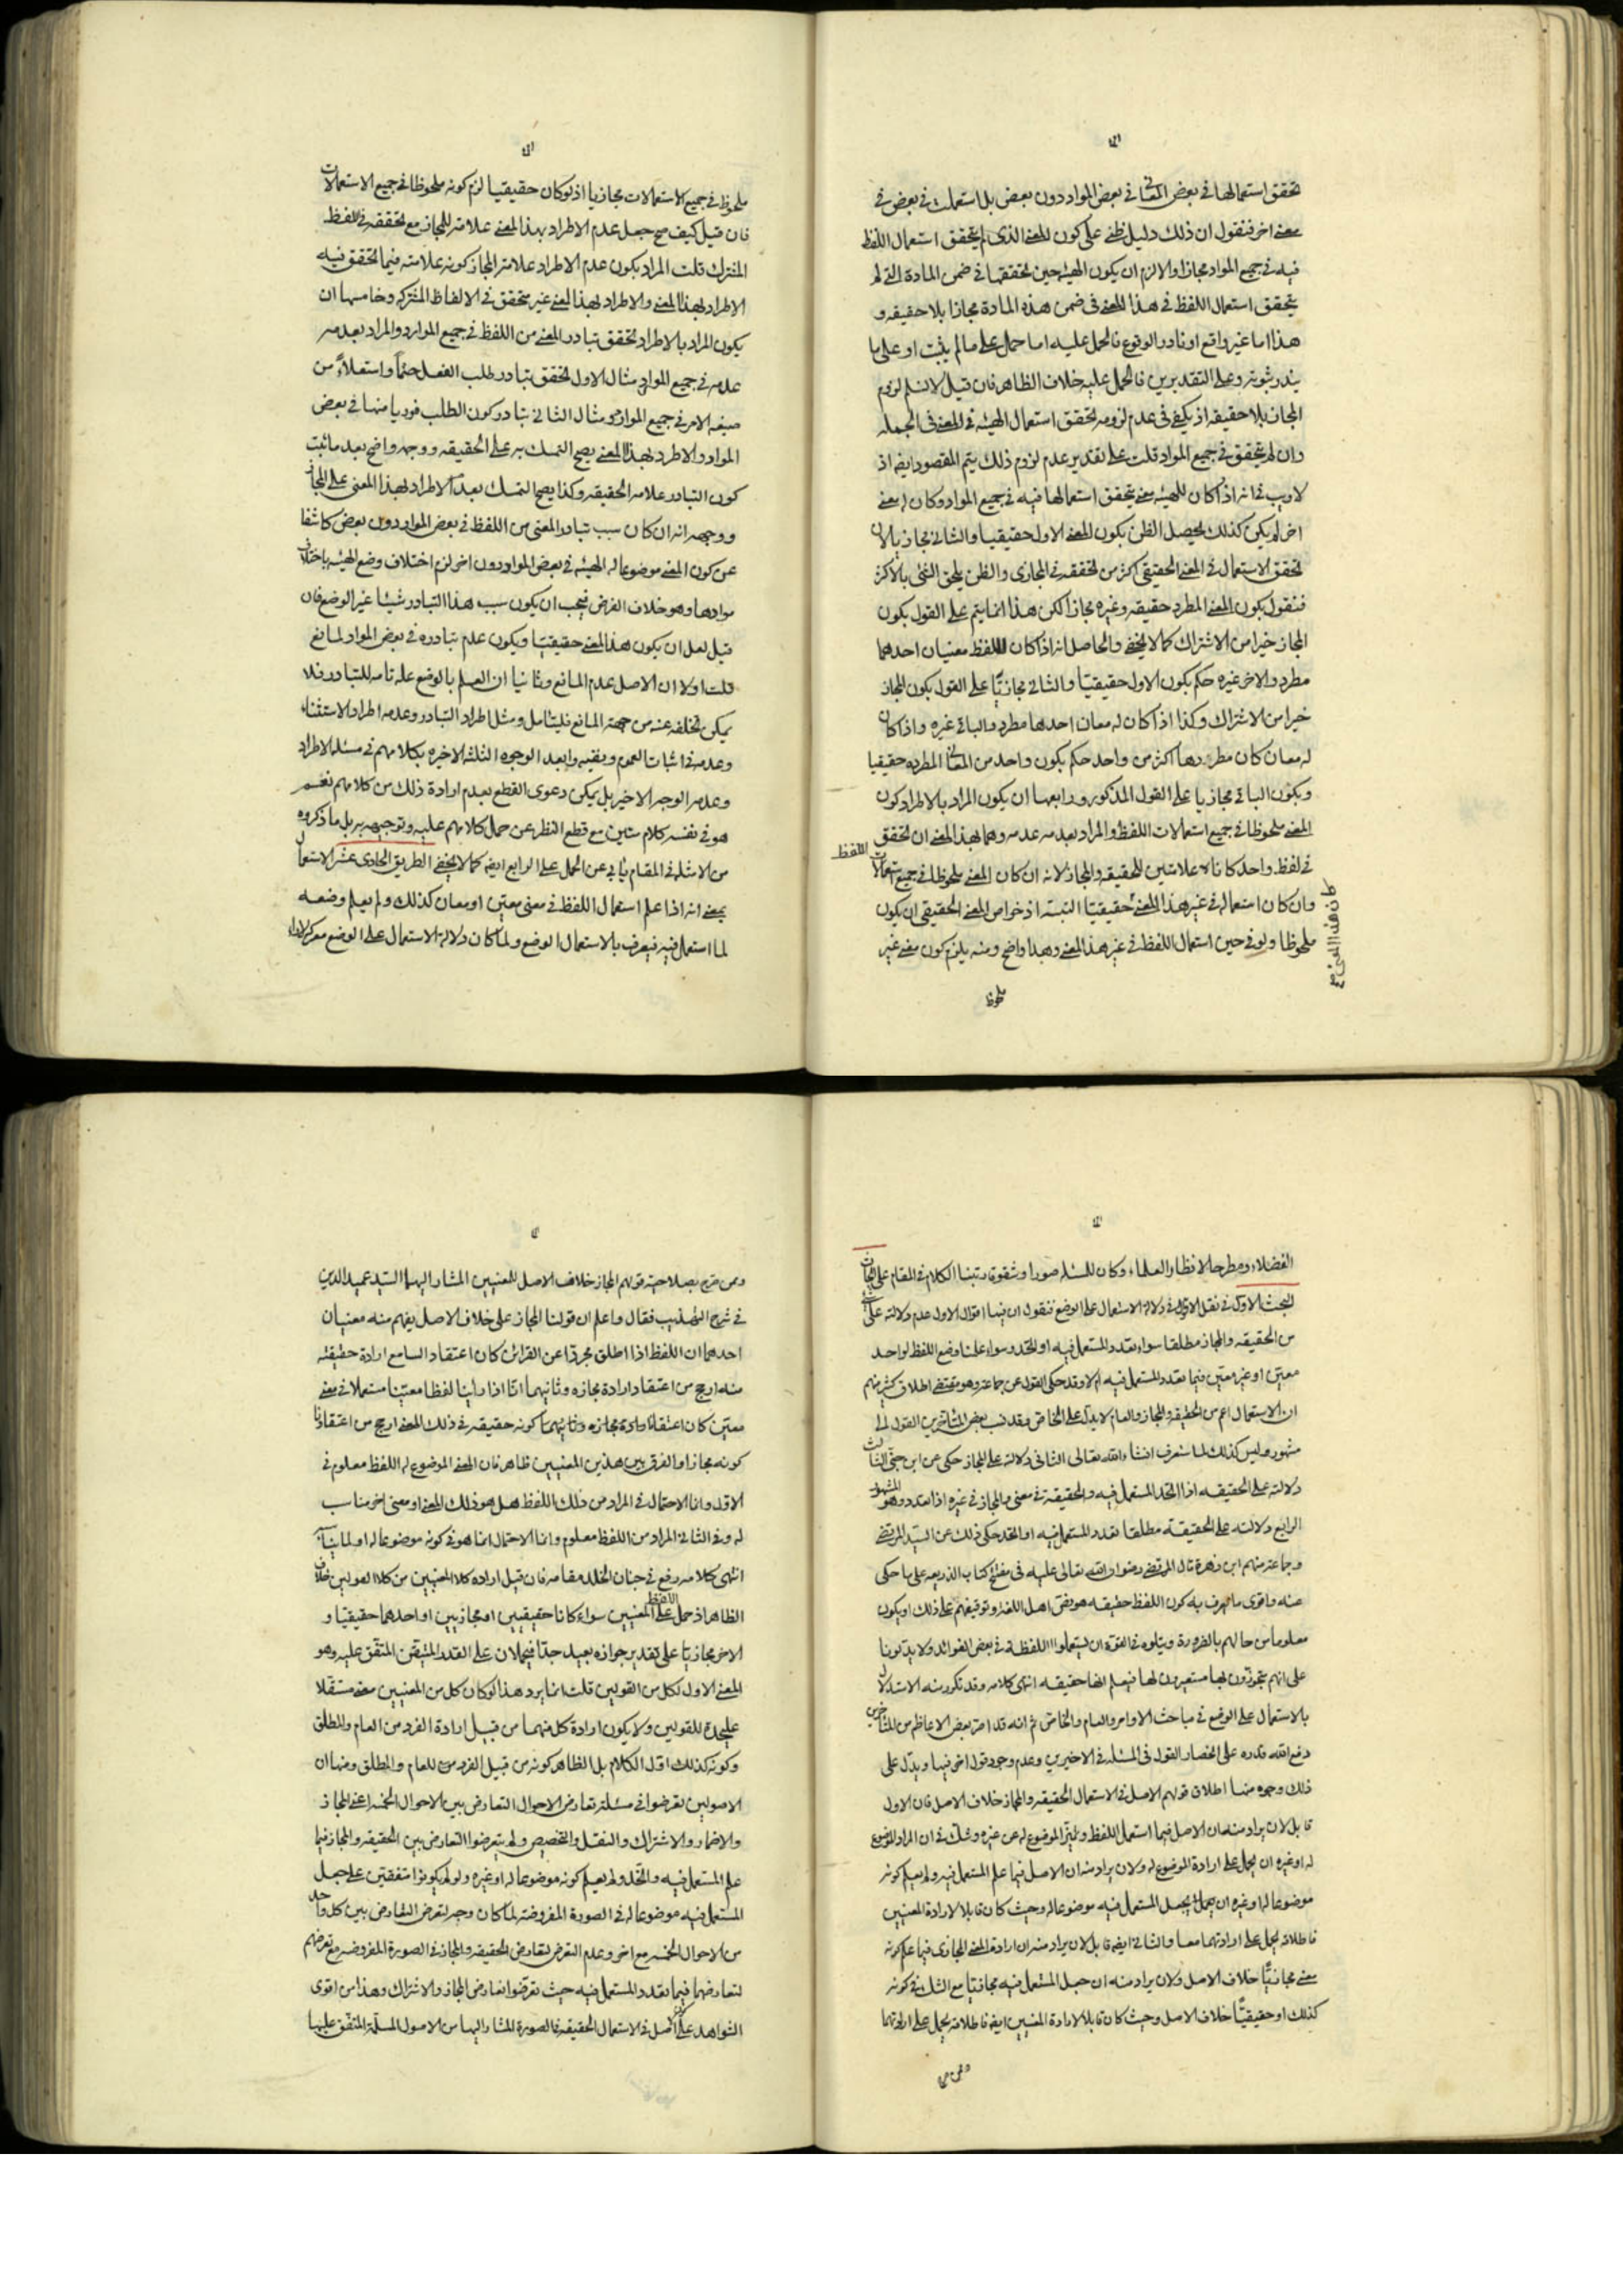 تحقق استعمالها في بعض المعاني في بعض المواد دون بعض بل استعملت في بعض في
معنى اخر فنقول ان ذلك دليل ظني على كون المعنى الذي لم يتحقق استعمال اللفظ
فيه في جميع المواد مجازا والا لزم ان يكون الهيئة حين تحققها في ضمن المادة التي لم
يتحقق استعمال اللفظ في هذا المعنى في ضمن هذه المادة مجازا بلا حقيقه و
هذا اما غير واقع او نادر الوقوع فالحمل عليه اما حمل على ما لم يثبت او على ما
يندر ثبوته وعلى التقديرين فالحمل عليه خلاف الظاهر فان قيل لا نسلم لزوم
المجاز بلا حقيقه اذ يكفي في عدم لزومه تحقق استعمال الهيئة في المعنى في الجمله
وان لم يتحقق في جميع المواد قلت على تقدير عدم لزوم ذلك يتم المقصود ايضا اذ
لا ريب في انه اذا كان للهيئة معنى يتحقق استعمالها فيه في جميع المواد وكان له معنى
اخر لم يكن كذلك يحصل الظن بكون المعنى الاول حقيقيا والثاني مجازيا لان
تحقق الاستعمال في المعنى الحقيقي اكثر من تحققه في المجازي والظن يلحق الشئ بالاكثر
فنقول بكون المعنى المطرد حقيقه وغيره مجازا لكن هذا انما يتم على القول بكون
المجاز خيرا من الاشتراك كما لا يخفى والحاصل انه اذا كان للفظ معنيان احدهما
مطرد والاخر غيره حكم بكون الاول حقيقيا والثاني مجازيا على القول بكون المجاز
خيرا من الاشتراك وكذا اذا كان له معان احدها مطرد والباقي غيره واذا كان
له معان كان مطردها اكثر من واحد حكم بكون واحد من المعاني المطرده حقيقيا
وبكون الباقي مجازيا على القول المذكور ورابعها ان يكون المراد بالاطراد كون
المعنى ملحوظا في جميع استعمالات اللفظ والمراد بعدمه عدمه وهما بهذا المعنى ان تحقق
في لفظ واحد كانا علامتين للحقيقه والمجاز لانه ان كان المعنى ملحوظا في جميع استعمالات اللفظ
وان كان استعماله في غير هذا المعنى كان هذا المعنى حقيقيا البتة اذ خواص المعنى الحقيقي ان يكون
ملحوظا ولو في حين استعمال اللفظ في غير هذا المعنى وهذا واضح ومنه يلزم كون معنى غير
ملحوظ
ملحوظ في جميع الاستعمالات مجازيا اذ لو كان حقيقيا لزم كونه ملحوظا في جميع الاستعمالات
فان قيل كيف صح جعل عدم الاطراد بهذا المعنى علامة للمجاز مع تحققه في اللفظ
المشترك قلت المراد بكون عدم الاطراد علامة المجاز كونه علامته فيما تحقق فيه
الاطراد بهذا المعنى والاطراد بهذا المعنى غير متحقق في الالفاظ المشتركه وخامسها ان
يكون المراد بالاطراد تحقق تبادر المعنى من اللفظ في جميع الموارد والمراد بعدمه
عدمه في جميع المواد مثال الاول تحقق تبادر طلب الفعل حتما واستعلاء من
صيغه الامر في جميع المواد ومثال الثاني تبادر كون الطلب فوريا منها في بعض
المواد والاطراد بهذا المعنى يصح التمسك به على الحقيقه ووجهه واضح بعد ما ثبت
كون التبادر علامه الحقيقه وكذا يصح التمسك بعدم الاطراد لهذا المعنى على المجاز
ووجهه انه ان كان سبب تبادر المعنى من اللفظ في بعض المواد دون بعض كاشفا
عن كون المعنى موضوعا له الهيئه في بعض المواد دون اخر لزم اختلاف وضع الهيئه باختلاف
موادها وهو خلاف الفرض فيجب ان يكون سبب هذا التبادر شيئا غير الوضع فان
قيل لعل ان يكون هذا المعنى حقيقيا ويكون عدم تبادره في بعض المواد لمانع
قلت اولا ان الاصل عدم المانع وثانيا ان العلم بالوضع علة تامه للتبادر فلا
يمكن تخلفه عنه من جهة المانع فليتامل ومثل اطراد التبادر وعدمه اطراد الاستثناء
وعدمه في اثبات العموم ونفيه وابعد الوجوه الثلثه الاخيره بكلامهم في مسئلة الاطراد
وعدمه الوجه الاخير بل يمكن دعوى القطع بعدم ارادة ذلك من كلامهم نعم
هو في نفسه كلام متين مع قطع النظر عن حمل كلامهم عليه وتوجيهه به بل ما ذكروه
من الامثلة في المقام يأبى عن الحمل على الرابع ايضا كما لا يخفى الطريق الحادي عشر الاستعمال
بمعنى انه اذا علم استعمال اللفظ في معنى معين او معان كذلك ولم يعلم وضعه
لما استعمل فيه فيعرف بالاستعمال الوضع ولما كان دلالة الاستعمال على الوضع معركة لاراء
الفضلاء ومطرحا لانظار العلماء وكان للمسئله صور او شقوق رتبنا الكلام في المقام على ابحاث
البحث الاول في نقل الاقوال في دلالة الاستعمال على الوضع فنقول ان فيها اقوال الاول عدم دلالته على شئ
من الحقيقه والمجاز مطلقا سواء تعدد المستعمل فيه او اتحد وسواء علمنا وضع اللفظ لواحد
معين او غير معين فيما تعدد المستعمل فيه ام لا وقد حكى القول عن جماعة وهو مقتضى اطلاق كثير منهم
ان الاستعمال اعم من الحقيقه والمجاز والعام لا يدل على الخاص وقد نسب بعض المتاخرين القول الى
مشهور وليس كذلك لما ستعرف انشاء الله تعالى الثاني دلالته على المجاز حكى عن ابن جني الثالث
دلالته على الحقيقه اذا اتحد المستعمل فيه والحقيقة في معنى والمجاز في غيره اذا تعدد وهو المشهور
الرابع دلالته على الحقيقة مطلقا تعدد المستعمل فيه او اتحد حكى ذلك عن السيد المرتضى
وجماعة منهم ابن زهرة قال المرتضى رضوان الله تعالى عليه في كتاب الذريعه على ما حكى
عنه واقوى ما يعرف به كون اللفظ حقيقه هو نص اهل اللغة وتوقيفهم على ذلك او يكون
معلوما من حالهم بالضرورة ويتلوه في القوة ان يستعملوا اللفظة في بعض الفوائد ولا يدلونا
على انهم متجوزون بها مستعيرون لها فيعلم انها حقيقه انتهى كلامه وقد تكرر منه الاستدلال
بالاستعمال على الوضع في مباحث الاوامر والعام والخاص ثم انه قد اصر بعض الاعاظم من المتاخرين
رفع الله قدره على انحصار القول في المسئلة في الاخيرين وعدم وجود قول اخر فيها ويدل على
ذلك وجوه منها اطلاق قولهم الاصل في الاستعمال الحقيقه والمجاز خلاف الاصل فان الاول
قابل لان يراد منه ان الاصل فيما استعمل اللفظ وتميز الموضوع له عن غيره وشك في ان المراد الموضوع
له او غيره ان يحمل على ارادة الموضوع له ولان يراد منه ان الاصل فيما علم المستعمل فيه ولم يعلم كونه
موضوعا له او غيره ان يجعل المستعمل فيه موضوعا له وحيث كان قابلا لارادة المعنيين
فاطلاقه يحمل على ارادتهما معا والثاني ايضا قابل لان يراد منه ان ارادة المعنى المجازي فيما علم كونه
معنى مجازيا خلاف الاصل ولان يراد منه ان جعل المستعمل فيه مجازيا مع الشك في كونه
كذلك او حقيقيا خلاف الاصل وحيث كان قابلا لارادة المعنيين ايضا فاطلاقه يحمل على ارادتهما
وممن صرح
وممن صرح بصلاحية قولهم المجاز خلاف الاصل للمعنيين المشار اليهما السيد عميد الدين
في شرح التهذيب فقال واعلم ان قولنا المجاز على خلاف الاصل يفهم منه معنيان
احدهما ان اللفظ اذا اطلق مجردا عن القرائن كان اعتقاد السامع ارادة حقيقته
منه ارجح من اعتقاد ارادة مجازه وثانيهما انا اذا راينا لفظا معينا مستعملا في معنى
معين كان اعتقادنا كونه حقيقه في ذلك المعنى ارجح من اعتقادنا
كونه مجازا والفرق بين هذين المعنيين ظاهر فان المعنى الموضوع له اللفظ معلوم في
الاول وانما الاحتمال في المراد من ذلك اللفظ هل هو ذلك المعنى او معنى اخر مناسب
له وفي الثاني المراد من اللفظ معلوم وانما الاحتمال انما هو في كونه موضوعا له او لما يناسبه
انتهى كلامه رفع في جنان الخلد مقامه فان قيل ارادة كلا المعنيين من كلا القولين خلاف
الظاهر اذ حمل اللفظ على المعنيين سواء كانا حقيقيين او مجازيين او احدهما حقيقيا و
الاخر مجازيا على تقدير جوازه بعيد جدا فيحملان على القدر المتيقن المتفق عليه وهو
المعنى الاول لكل من القولين قلت انما يرد هذا لو كان كل من المعنيين معنى مستقلا
عليحدة للقولين ولا يكون ارادة كل منهما من قبيل ارادة الفرد من العام والمطلق
وكونه كذلك اول الكلام بل الظاهر كونه من قبيل الفرد من العام والمطلق ومنها ان
الاصوليين تعرضوا في مسئلة تعارض الاحوال التعارض بين الاحوال الخمسة اعني المجاز
والاضمار والاشتراك والنقل والتخصيص ولم يتعرضوا التعارض بين الحقيقه والمجاز فيما
علم المستعمل فيه واتحد ولم يعلم كونه موضوعا له او غيره ولو لم يكونوا متفقين على جعل
المستعمل فيه موضوعا له في الصورة المفروضة لما كان وجه لتعرض التعارض بين كل واحد
من الاحوال الخمسه مع اخر وعدم التعرض لتعارض الحقيقه والمجاز في الصورة المفروضه مع تعرضهم
لتعارضهما فيما تعدد المستعمل فيه حيث تعرضوا تعارض المجاز والاشتراك وهذا من اقوى
الشواهد على كون الاصل في الاستعمال الحقيقه في الصورة المشار اليها من الاصول المسلمة المتفق عليها